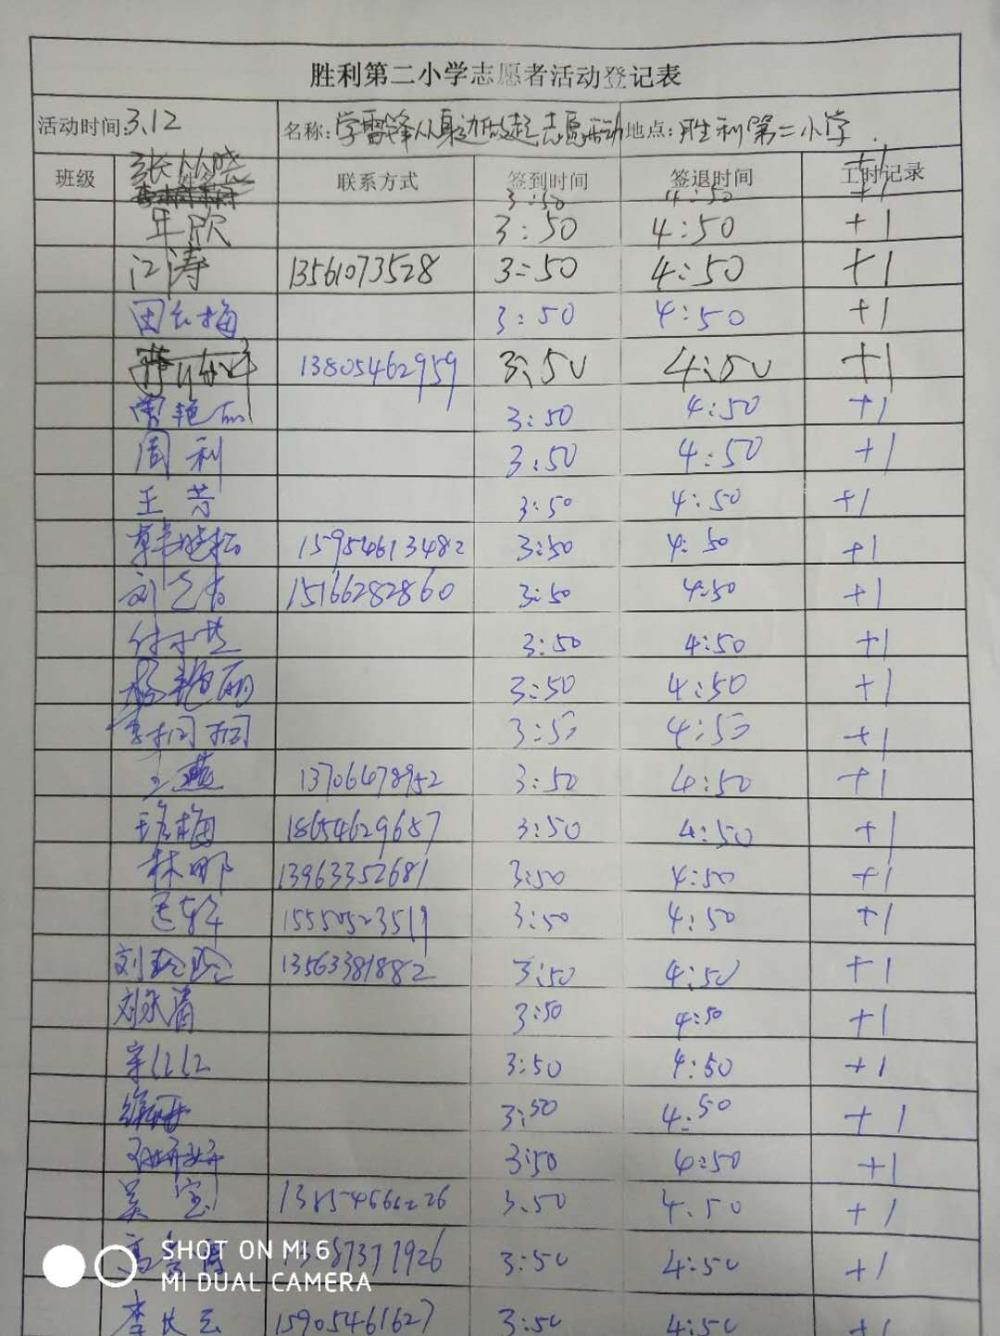 胜利第二小学志愿者活动登记表
活动时间:3.12 名称:学雷锋从身边做起志愿活动 地点:胜利第二小学.
班级 张从晓 联系方式 签到时间 签退时间 工时记录 +1
3:50 4:50 +1
年欣 3:50 4:50 +1
江涛 13561073528 3:50 4:50 +1
田长梅 3:50 4:50 +1
13805462959 3:50 4:50 +1
曾艳丽 3:50 4:50 +1
周利 3:50 4:50 +1
王芳 3:50 4:50 +1
韩晓松 15954613482 3:50 4:50 +1
刘 15166282860 3:50 4:50 +1
3:50 4:50 +1
杨艳丽 3:50 4:50 +1
3:50 4:50 +1
王燕 13706478952 3:50 4:50 +1
梅 18654629687 3:50 4:50 +1
林娜 13963352681 3:50 4:50 +1
3:50 4:50 +1
刘玲玲 13563381882 3:50 4:50 +1
刘 3:50 4:50 +1
宋 3:50 4:50 +1
徐 3:50 4:50 +1
3:50 4:50 +1
吴宝 13854666226 3:50 4:50 +1
高 3:50 4:50 +1
李长云 15905461627 3:50 4:50 +1
SHOT ON MI 6
MI DUAL CAMERA